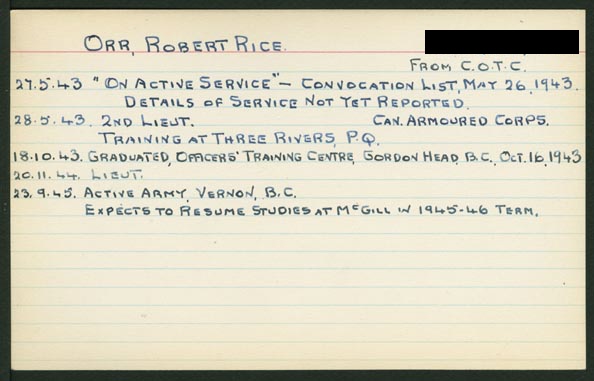 ORR, ROBERT RICE.
FROM C.O.T.C.
27.5.43 "ON ACTIVE SERVICE" - CONVOCATION LIST, MAY 26, 1943.
DETAILS OF SERVICE NOT YET REPORTED.
28.5.43. 2ND LIEUT. CAN. ARMOURED CORPS.
TRAINING AT THREE RIVERS, P.Q.
18.10.43. GRADUATED, OFFICERS' TRAINING CENTRE, GORDON HEAD, B.C., OCT. 16, 1943
20.11.44. LIEUT.
23.9.45. ACTIVE ARMY, VERNON, B.C.
EXPECTS TO RESUME STUDIES AT McGILL IN 1945-46 TERM.